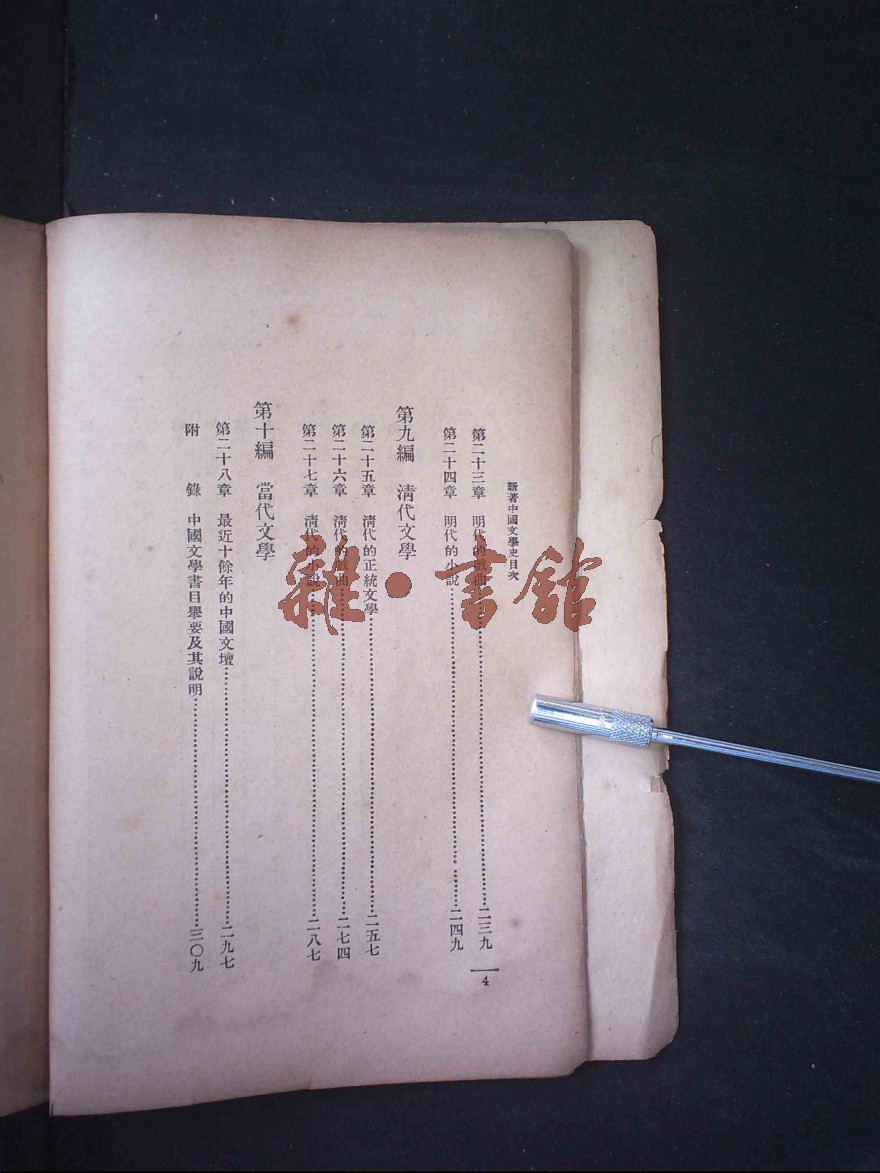 新著中國文學史目次
4
第二十三章 明代的戲曲………二三九
第二十四章 明代的小說………二四九
第九編 清代文學
第二十五章 清代的正統文學………二五七
第二十六章 清代的戲曲………二七四
第二十七章 清代的小說………二八七
第十編 當代文學
第二十八章 最近十餘年的中國文壇………二九七
附 錄 中國文學書目舉要及其說明………三〇九
雜·書館